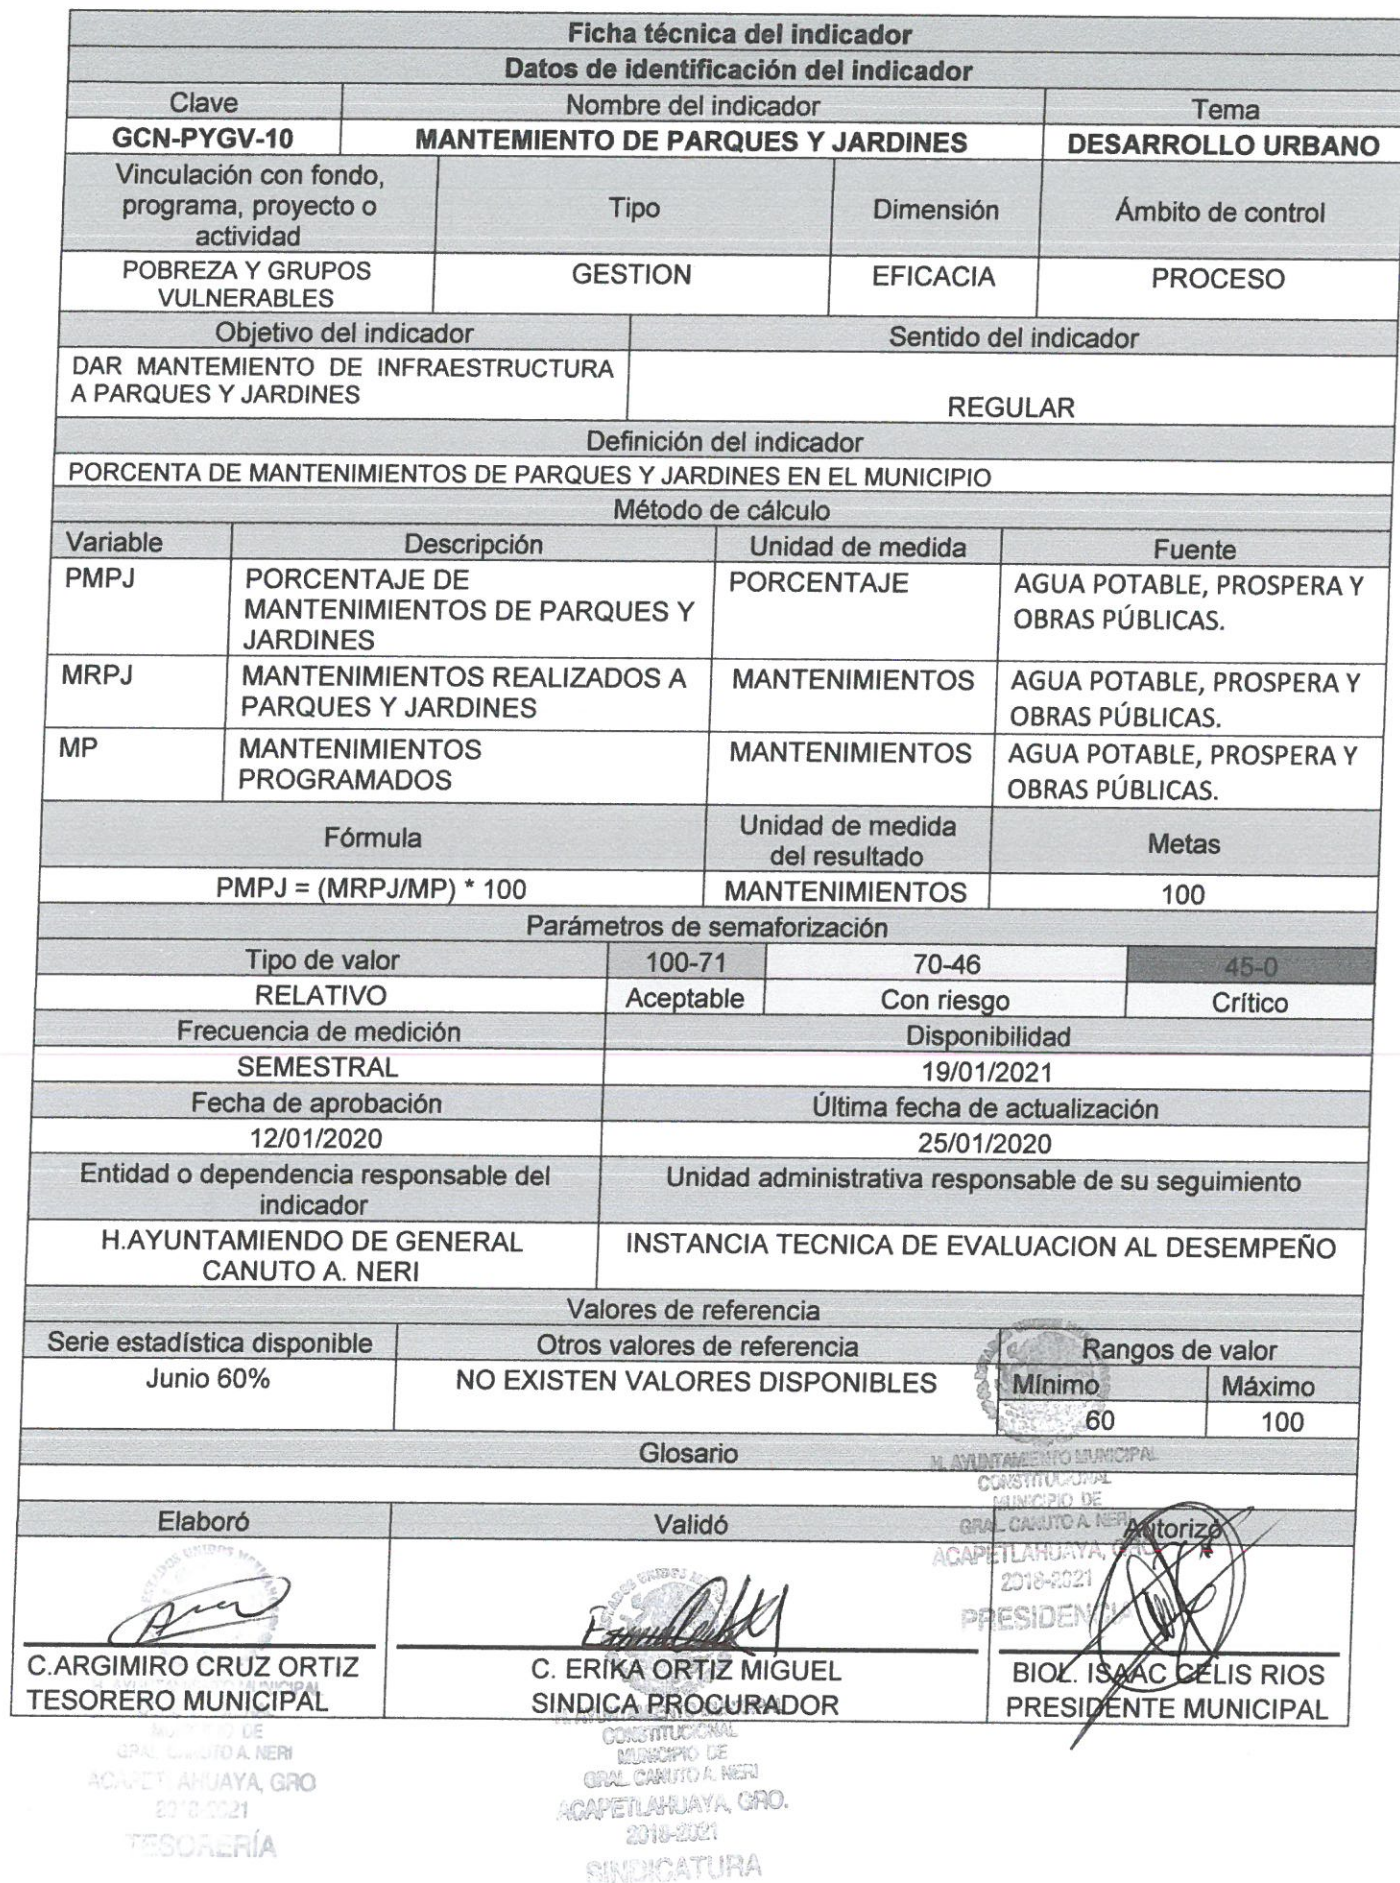 Ficha técnica del indicador
Datos de identificación del indicador
Clave Nombre del indicador Tema
GCN-PYGV-10 MANTEMIENTO DE PARQUES Y JARDINES DESARROLLO URBANO
Vinculación con fondo,
programa, proyecto o
actividad
Tipo Dimensión Ámbito de control
POBREZA Y GRUPOS
VULNERABLES
GESTION EFICACIA PROCESO
Objetivo del indicador Sentido del indicador
DAR MANTEMIENTO DE INFRAESTRUCTURA
A PARQUES Y JARDINES
REGULAR
Definición del indicador
PORCENTA DE MANTENIMIENTOS DE PARQUES Y JARDINES EN EL MUNICIPIO
Método de cálculo
Variable Descripción Unidad de medida Fuente
PMPJ PORCENTAJE DE
MANTENIMIENTOS DE PARQUES Y
JARDINES
PORCENTAJE
AGUA POTABLE, PROSPERA Y
OBRAS PÚBLICAS.
MRPJ MANTENIMIENTOS REALIZADOS A
PARQUES Y JARDINES
MANTENIMIENTOS
AGUA POTABLE, PROSPERA Y
OBRAS PÚBLICAS.
MP MANTENIMIENTOS
PROGRAMADOS
MANTENIMIENTOS
AGUA POTABLE, PROSPERA Y
OBRAS PÚBLICAS.
Fórmula
Unidad de medida
del resultado
Metas
PMPJ = (MRPJ/MP) * 100 MANTENIMIENTOS 100
Parámetros de semaforización
Tipo de valor 100-71 70-46 45-0
RELATIVO Aceptable Con riesgo Crítico
Frecuencia de medición Disponibilidad
SEMESTRAL 19/01/2021
Fecha de aprobación Última fecha de actualización
12/01/2020 25/01/2020
Entidad o dependencia responsable del
indicador
Unidad administrativa responsable de su seguimiento
H.AYUNTAMIENDO DE GENERAL
CANUTO A. NERI
INSTANCIA TECNICA DE EVALUACION AL DESEMPEÑO
Valores de referencia
Serie estadística disponible Otros valores de referencia Rangos de valor
Junio 60% NO EXISTEN VALORES DISPONIBLES Mínimo Máximo
60 100
Glosario
H. AYUNTAMIENTO MUNICIPAL
CONSTITUCIONAL
MUNICIPIO DE
GRAL. CANUTO A. NERI
ACAPETLAHUAYA, GRO.
2018-2021
PRESIDENCIA
Elaboró Validó Autorizó
C.ARGIMIRO CRUZ ORTIZ
TESORERO MUNICIPAL
C. ERIKA ORTIZ MIGUEL
SINDICA PROCURADOR
BIOL. ISAAC CELIS RIOS
PRESIDENTE MUNICIPAL
GRAL. CANUTO A. NERI
ACAPETLAHUAYA, GRO
2018-2021
TESORERÍA
H. AYUNTAMIENTO MUNICIPAL
CONSTITUCIONAL
MUNICIPIO DE
GRAL. CANUTO A. NERI
ACAPETLAHUAYA, GRO.
2018-2021
SINDICATURA